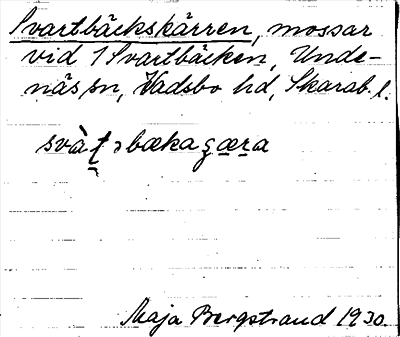 Svartbäckskärren, mossar
vid 1 Svartbäcken, Unde-
näs sn, Vadsbo hd, Skarab. l.
Maja Bergstrand 1930.